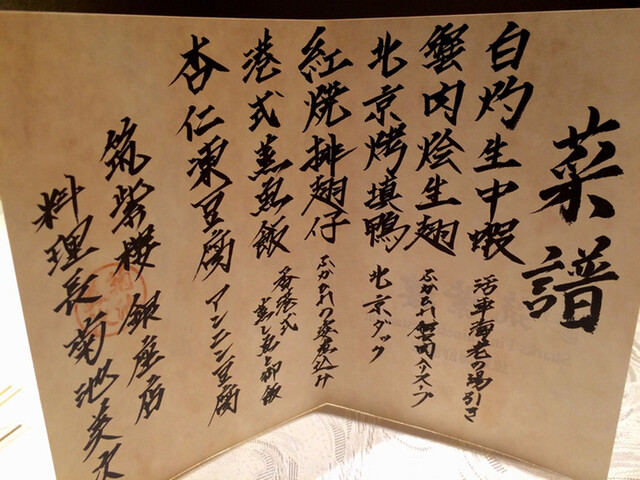 菜譜
白灼生中蝦
活車海老の湯引き
蟹肉烩生翅
ふかひれ蟹肉入りスープ
北京烤填鴨
北京ダック
紅焼排翅仔
ふかひれの姿煮込み
港式蒸魚飯
香港式蒸し魚と御飯
杏仁凍豆腐
アンニン豆腐
筑紫樓 銀座店
料理長 南池